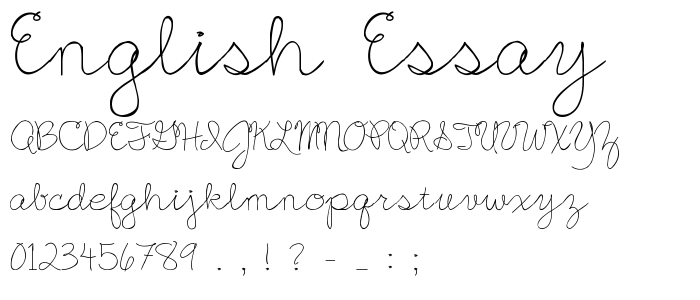 English Essay
ABCDEFGHIJKLMNOPQRSTUVWXYZ
abcdefghijklmnopqrstuvwxyz
0123456789 . , ! ? - _ : ;